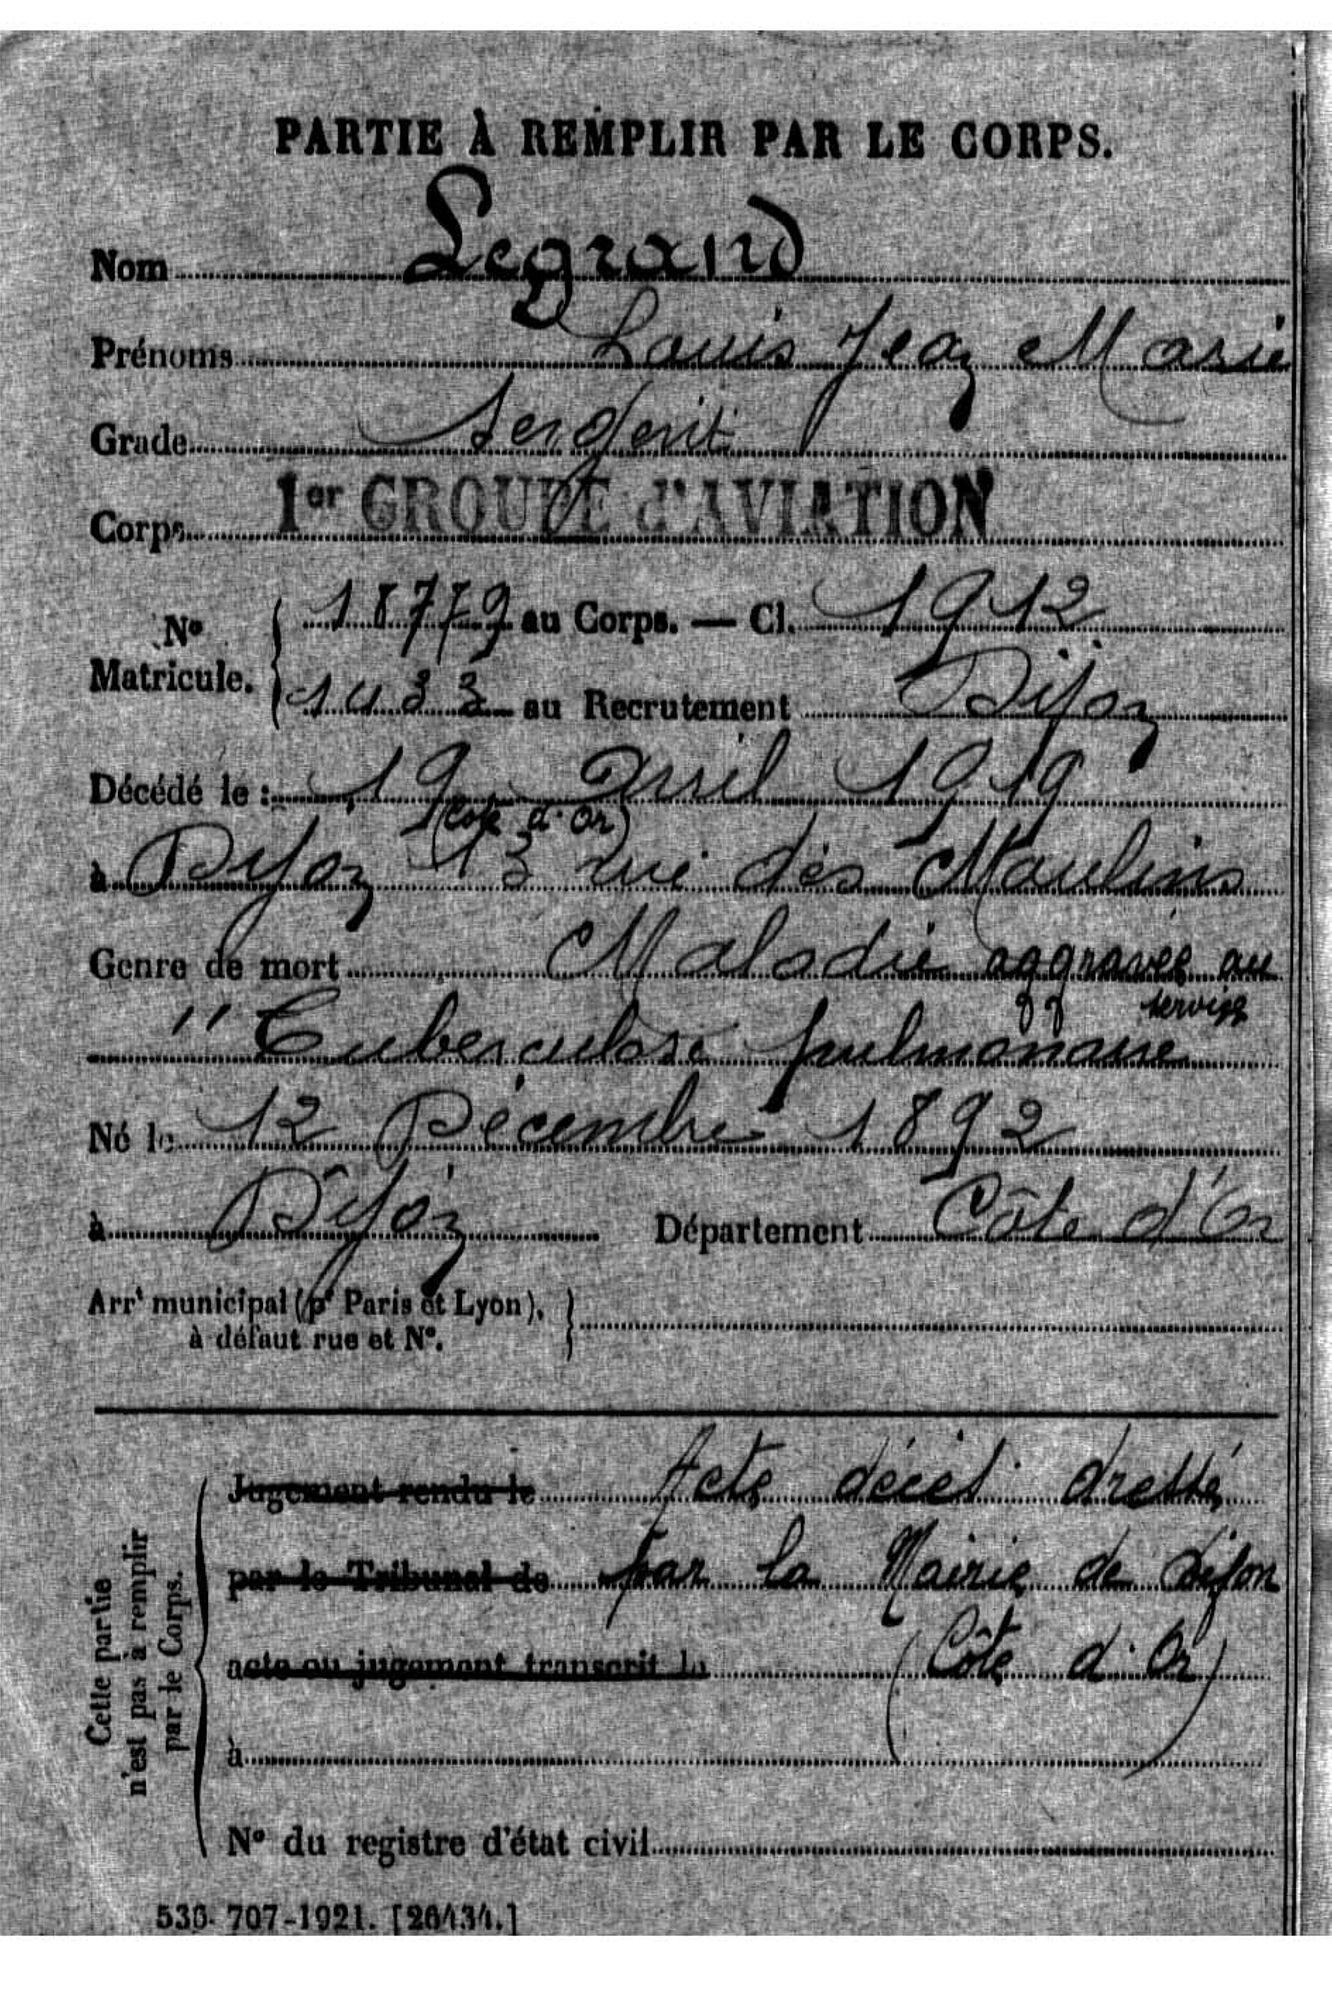 PARTIE À REMPLIR PAR LE CORPS.
Nom Legrand
Prénoms Louis Jean Marie
Grade Sergent
Corps 1er GROUPE d'AVIATION
No Matricule. 18779 au Corps. — Cl. 1912
1433 au Recrutement Dijon
Décédé le : 19 Avril 1919
(Côte d'Or)
à Dijon 13 rue des Moulins
Genre de mort Maladie aggravée au
service
" Tuberculose pulmonaire
Né le 12 Décembre 1892
à Dijon Département Côte d'Or
Arrt municipal (pr Paris et Lyon),
à défaut rue et No.
Cette partie
n'est pas à remplir
par le Corps.
Jugement rendu le Acte décès dressé
par le Tribunal de par la Mairie de Dijon
acte ou jugement transcrit le (Côte d'Or)
à
No du registre d'état civil
707-1921. [26434.]